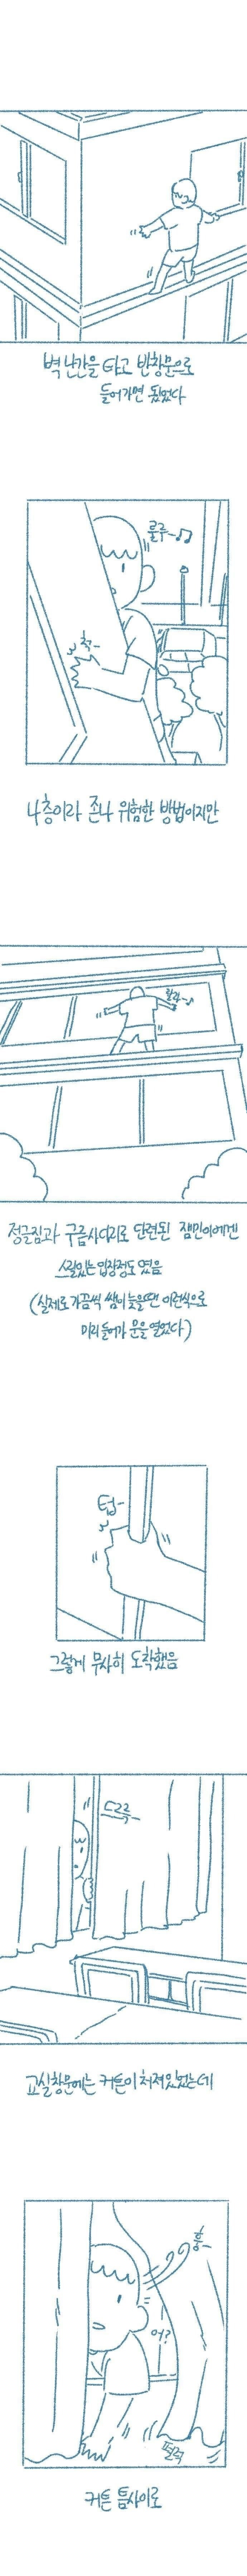 벽 난간을 타고 반창문으로
들어가면 됐었다
룰루~♪♫
척-
4층이라 존나 위험한 방법이지만
랄라~♪
정글짐과 구름사다리로 단련된 잼민이에겐
스릴있는 입장정도였음
(실제로 가끔씩 쌤이 늦을땐 이런식으로
미리 들어가 문을 열었다)
텁-
그렇게 무사히 도착했음
드르륵-
교실창문에는 커튼이 처져있었는데
휭-
어?
펄럭
커튼 틈사이로